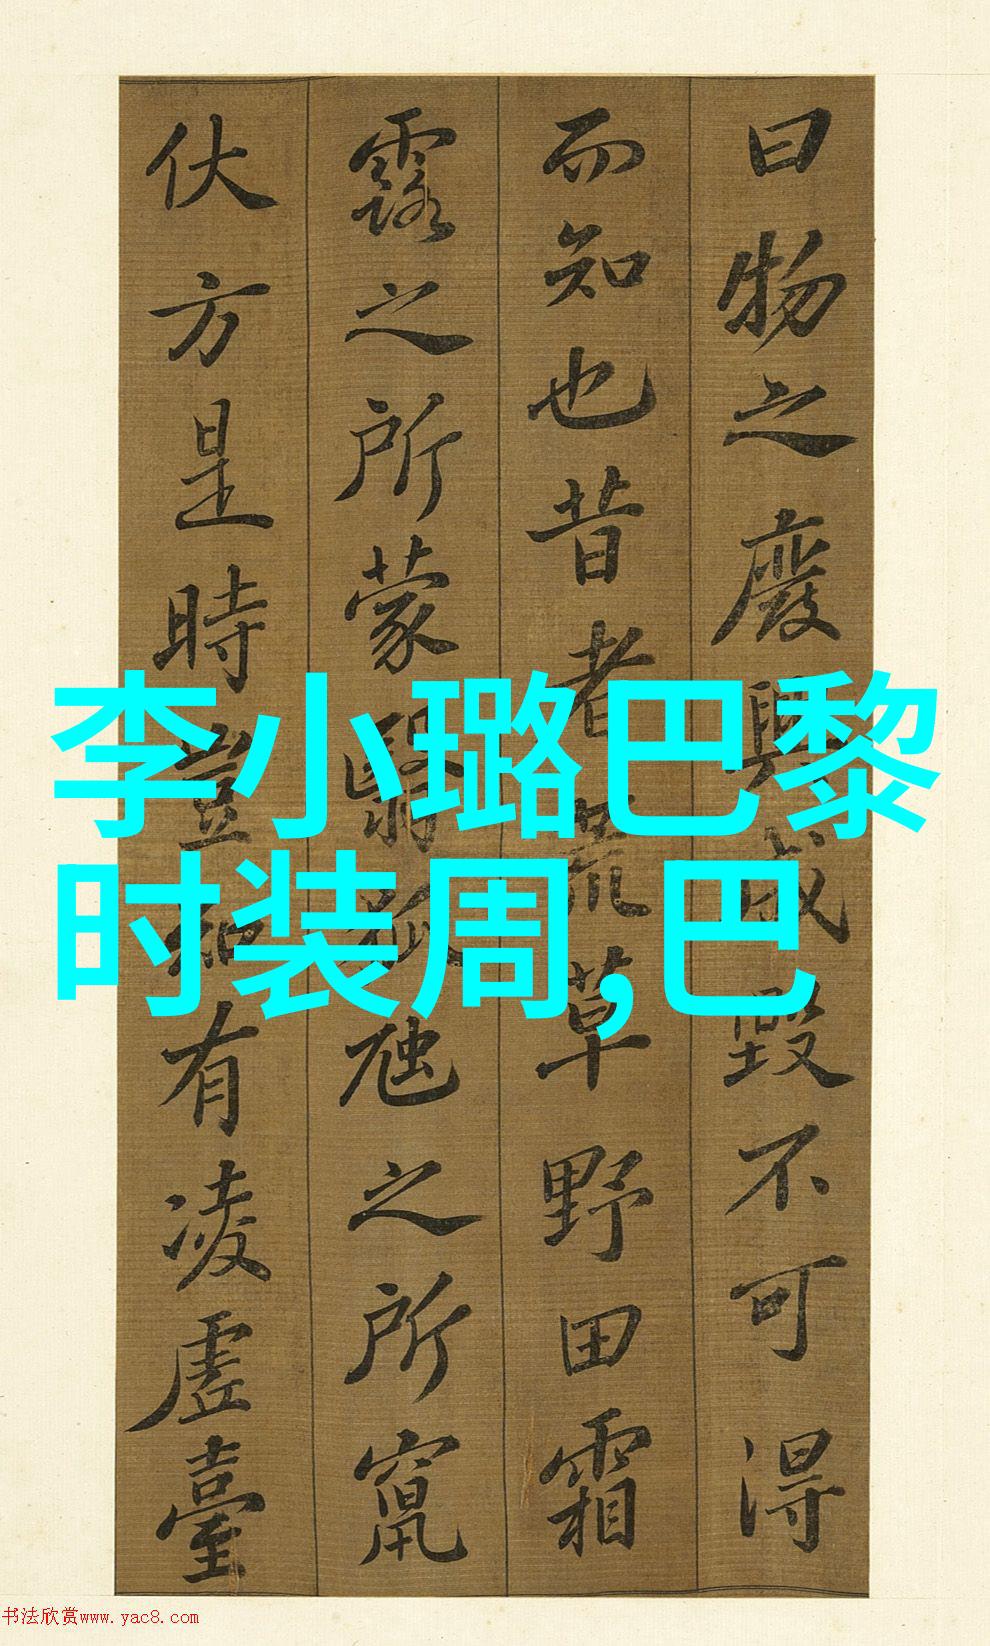 曰物之廢興成毀不可得
而知也昔者荒草野田霜
露之所蒙翳狐虺之所竄
伏方是時豈知有凌虛臺
李小璐巴黎
时装周,巴
书法欣赏www.yac8.com